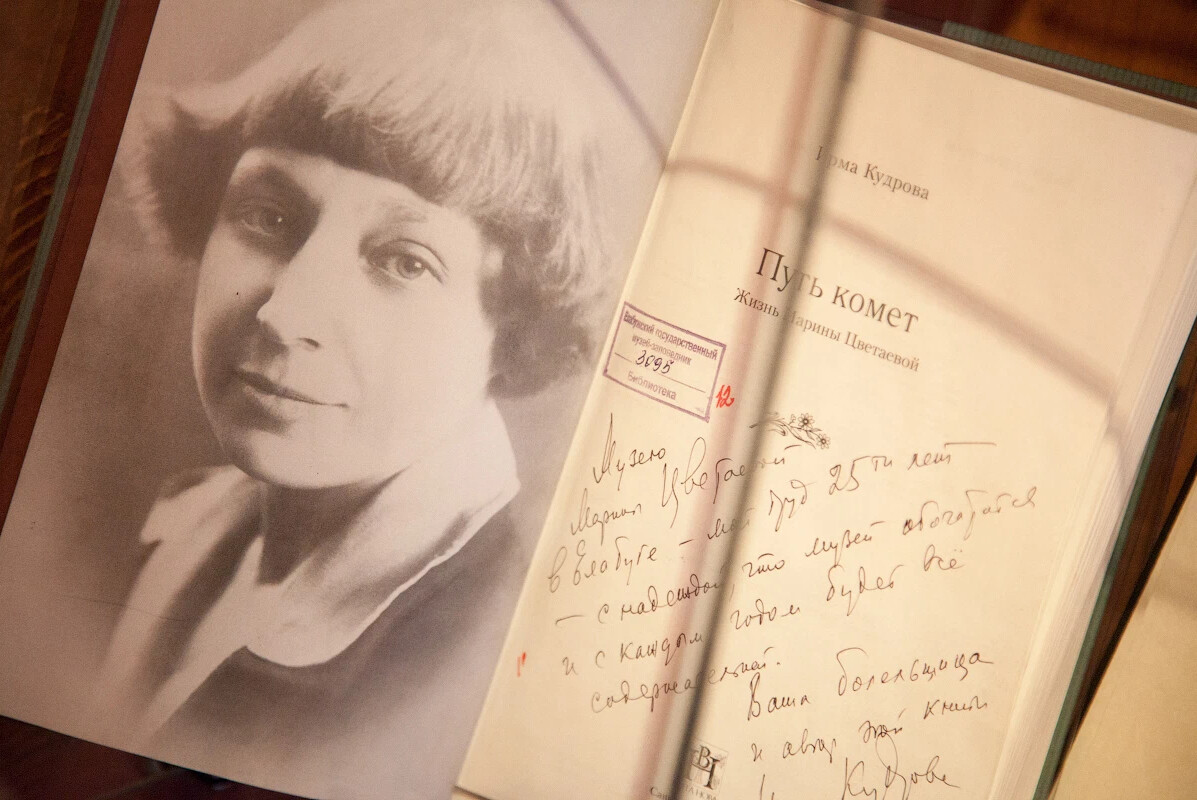 Ирма Кудрова
Путь комет
Жизнь Марины Цветаевой
Елабужский государственный
музей-заповедник
3095
Библиотека
12
Музею
Марины Цветаевой
в Елабуге – мой труд 25ти лет
– с надеждой, что музей обогатится
и с каждым годом будет всё
содержательней.
Ваша болельщица
и автор этой книги
И. Кудрова